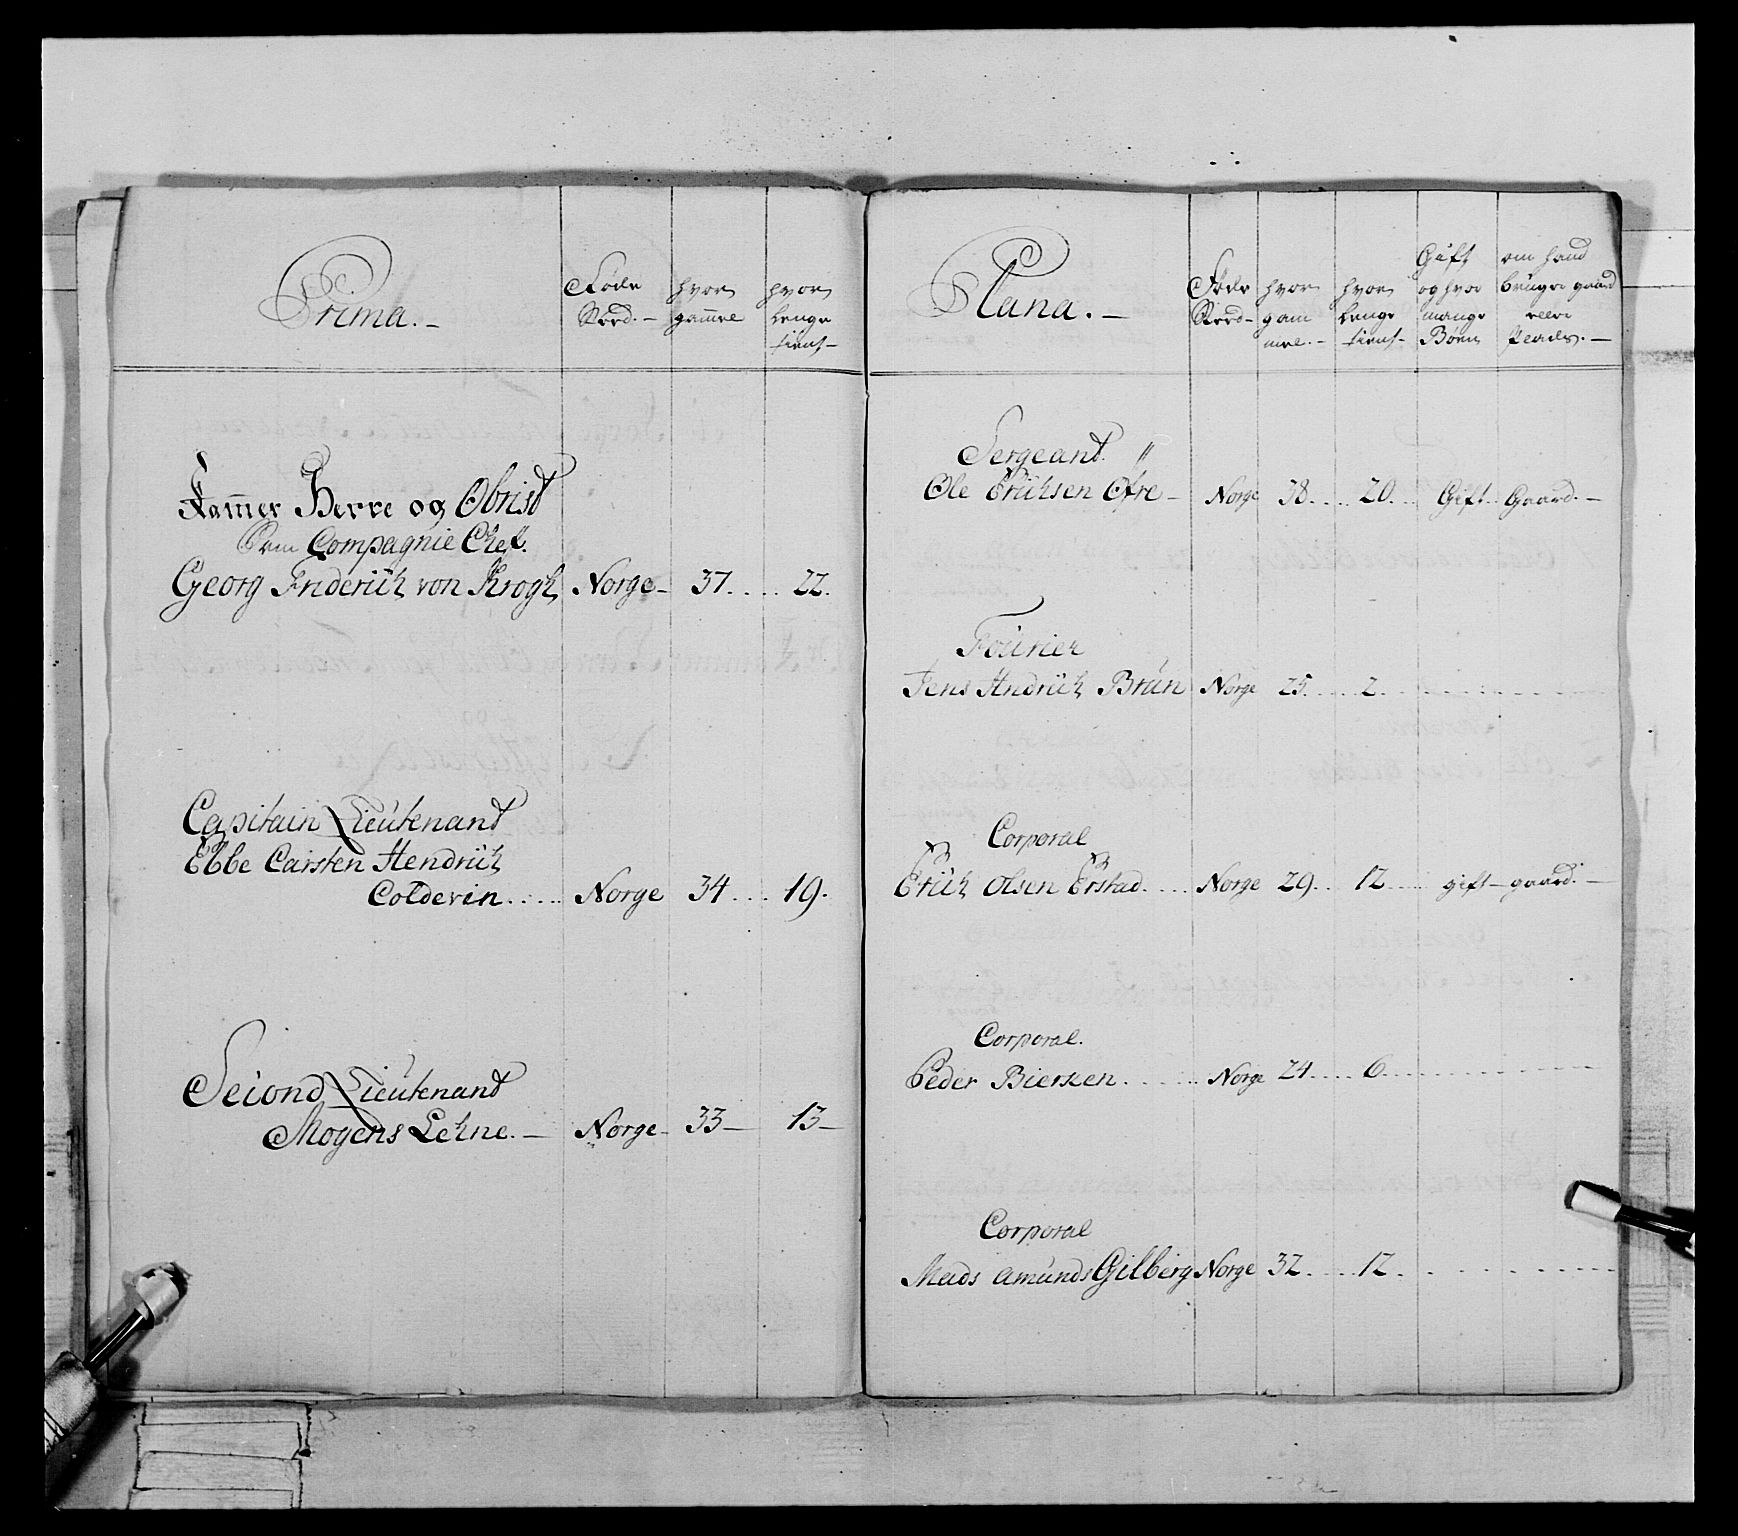 Prima.-
Føde
Sted.-
hvor
gammel
hvor
lenge
tient-
Kammer Herre og Obrist
Som Compagnie Chef.
Georg Friderich von Krogh Norge- 37.... 22.
Capitain Lieutenant
Ebbe Carsten Hendrich
Coldevin..... Norge 34... 19.
Second Lieutenant
Mogens Lehne.- Norge- 33- 13-
Plana.-
Føde
Sted-
hvor
gam
mel.-
hvor
lenge
tient-
Gift
og hvor
mange
Børn
om hand
bruger gaard
eller
Plads.-
Sergeant. "
Ole Erichsen Øfre- Norge 38.... 20... Gift.. Gaard.-
Fourier
Jens Andrich Brün Norge 25..... 2...........
Corporal
Erich Olsen Erstad..... Norge 29... 12..... gift- gaard.-
Corporal.
Peder Biersen....... Norge 24.... 6...........
Corporal
Mads Amunds Gilberg Norge 32..... 12...........